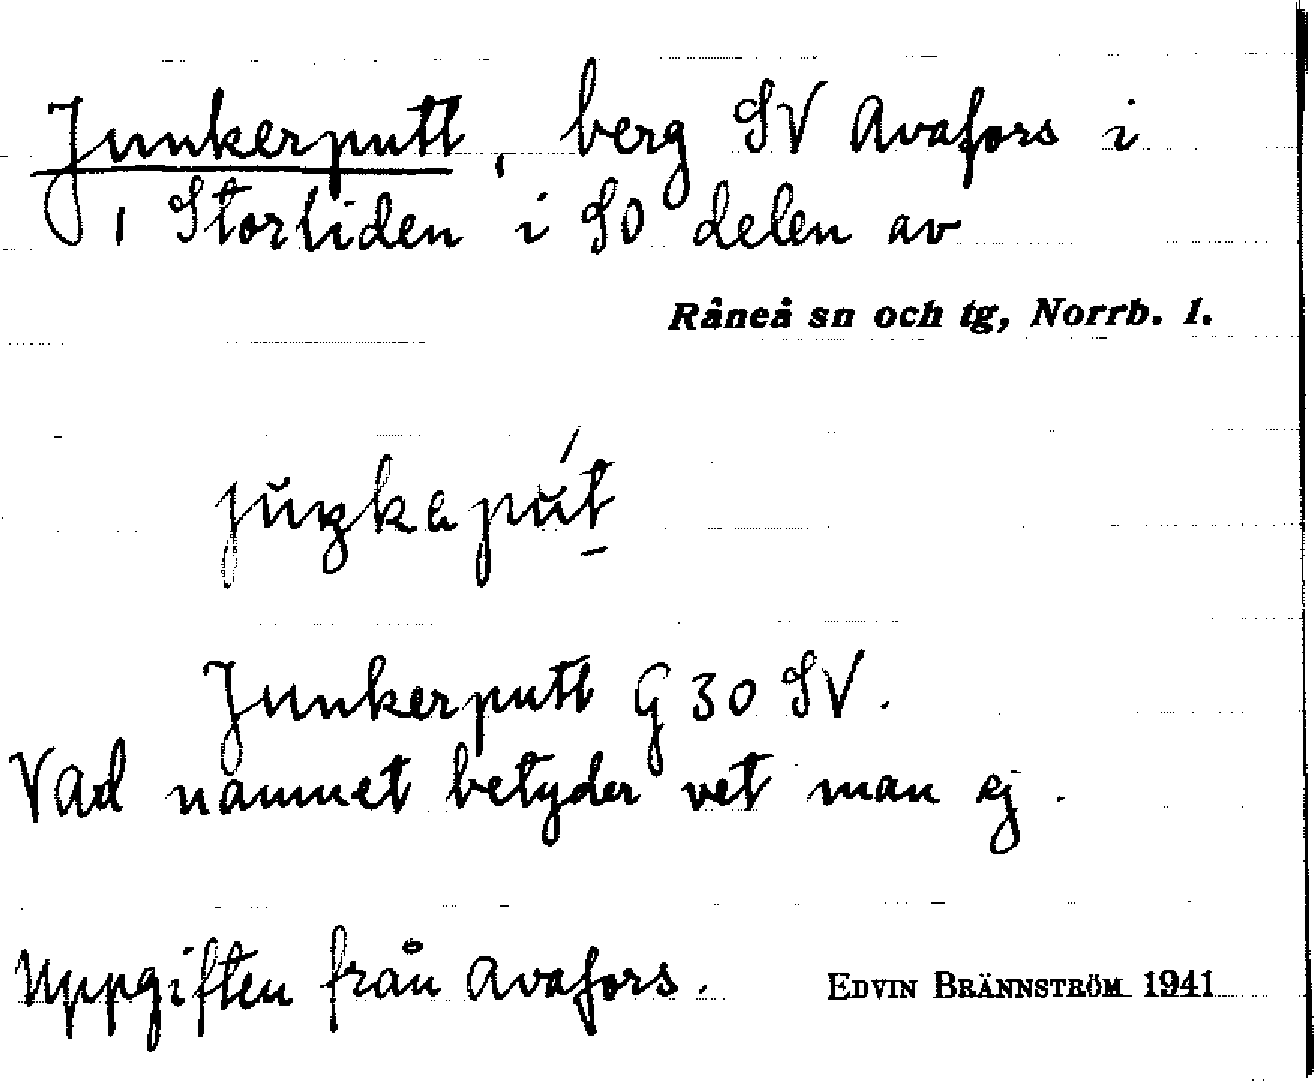 Junkerputt, berg SV Avafors i
i Storliden i SO delen av
Råneå sn och tg, Norrb. l.
Junkerputt G 30 SV.
Vad namnet betyder vet man ej.
Uppgiften från Avafors.
EDVIN BRÄNNSTRÖM 1941